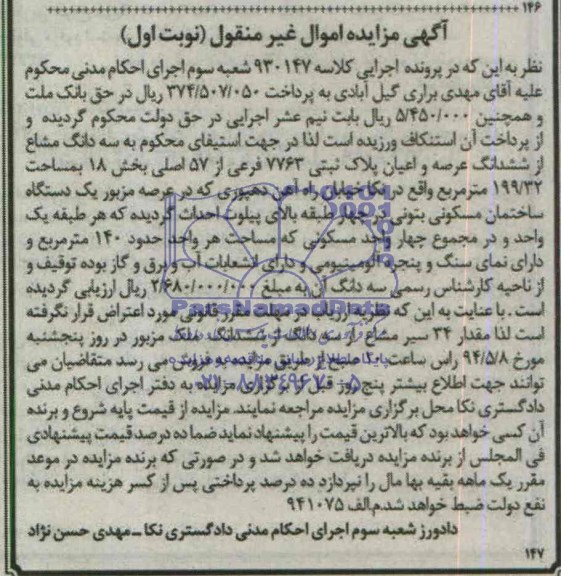 ۱۴۶
آگهی مزایده اموال غیر منقول (نوبت اول)
نظر به این که در پرونده اجرایی کلاسه ۹۳۰۱۴۷ شعبه سوم اجرای احکام مدنی محکوم
علیه آقای مهدی براری گیل آبادی به پرداخت ۳۷۴/۵۰۷/۰۵۰ ریال در حق بانک ملت
و همچنین ۵/۴۵۰/۰۰۰ ریال بابت نیم عشر اجرایی در حق دولت محکوم گردیده و
از پرداخت آن استنکاف ورزیده است لذا در جهت استیفای محکوم به سه دانگ مشاع
از ششدانگ عرصه و اعیان پلاک ثبتی ۷۷۶۳ فرعی از ۵۷ اصلی بخش ۱۸ بمساحت
۱۹۹/۳۲ مترمربع واقع در نکا خیابان راه آهن دهپوری که در عرصه مزبور یک دستگاه
ساختمان مسکونی بتونی در چهار طبقه بالای پیلوت احداث گردیده که هر طبقه یک
واحد و در مجموع چهار واحد مسکونی که مساحت هر واحد حدود ۱۴۰ مترمربع و
دارای نمای سنگ و پنجره آلومینیومی و دارای انشعابات آب و برق و گاز بوده توقیف و
از ناحیه کارشناس رسمی سه دانگ آن به مبلغ ۲/۶۸۰/۰۰۰/۰۰۰ ریال ارزیابی گردیده
است . با عنایت به این که نظریه ارزیاب در مهلت مقرر قانونی مورد اعتراض قرار نگرفته
است لذا مقدار ۳۴ سیر مشاع از سه دانگ از ششدانگ ملک مزبور در روز پنجشنبه
مورخ ۹۴/۵/۸ راس ساعت ۱۰ صبح از طریق مزایده به فروش می رسد متقاضیان می
توانند جهت اطلاع بیشتر پنج روز قبل از برگزاری مزایده به دفتر اجرای احکام مدنی
دادگستری نکا محل برگزاری مزایده مراجعه نمایند. مزایده از قیمت پایه شروع و برنده
آن کسی خواهد بود که بالاترین قیمت را پیشنهاد نماید ضما ده درصد قیمت پیشنهادی
فی المجلس از برنده مزایده دریافت خواهد شد و در صورتی که برنده مزایده در موعد
مقرر یک ماهه بقیه بها مال را نپردازد ده درصد پرداختی پس از کسر هزینه مزایده به
نفع دولت ضبط خواهد شد.م.الف ۹۴۱۰۷۵
دادورز شعبه سوم اجرای احکام مدنی دادگستری نکا ـ مهدی حسن نژاد
۱۴۷
ParsNamadData